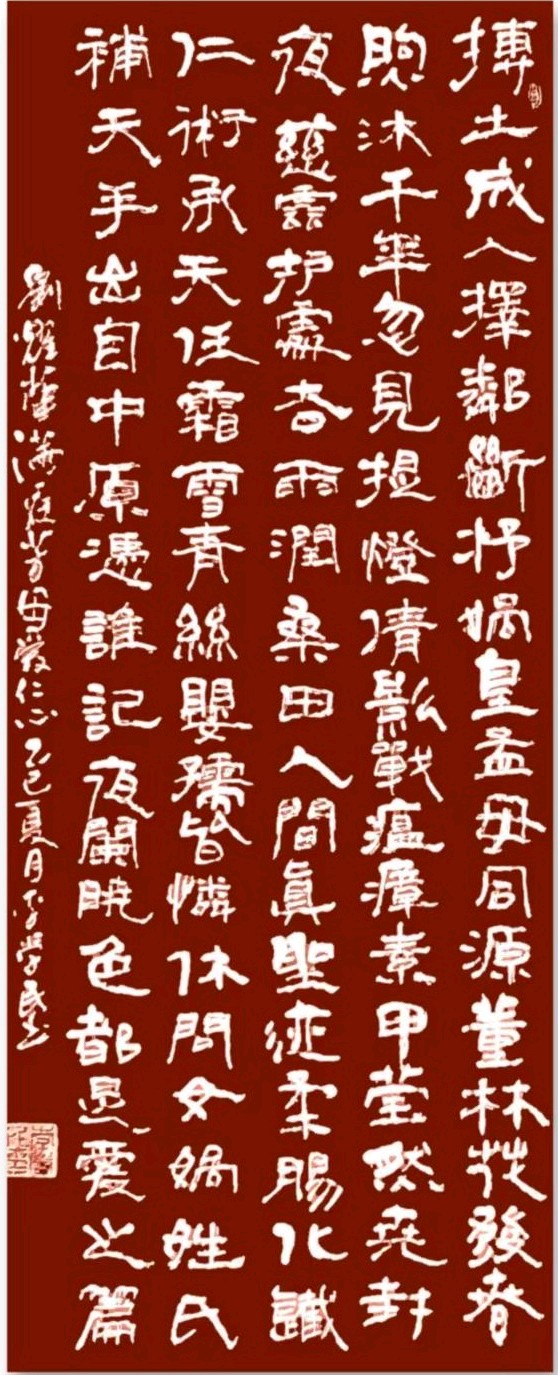 摶土成人擇鄰斷杼媧皇孟母同源董林花發春
煦沐千年忽見提燈倩影戰瘟瘴素甲瑩然堯封
夜慈雲护處杏雨潤桑田人間真聖迹柔腸化鐵
仁術承天任霜雪青絲嬰孺皆憐休問女媧姓氏
補天手出自中原憑誰記夜闌曉色都是愛之篇
劉耀華滿庭芳母愛仁心乙巳夏月李學民